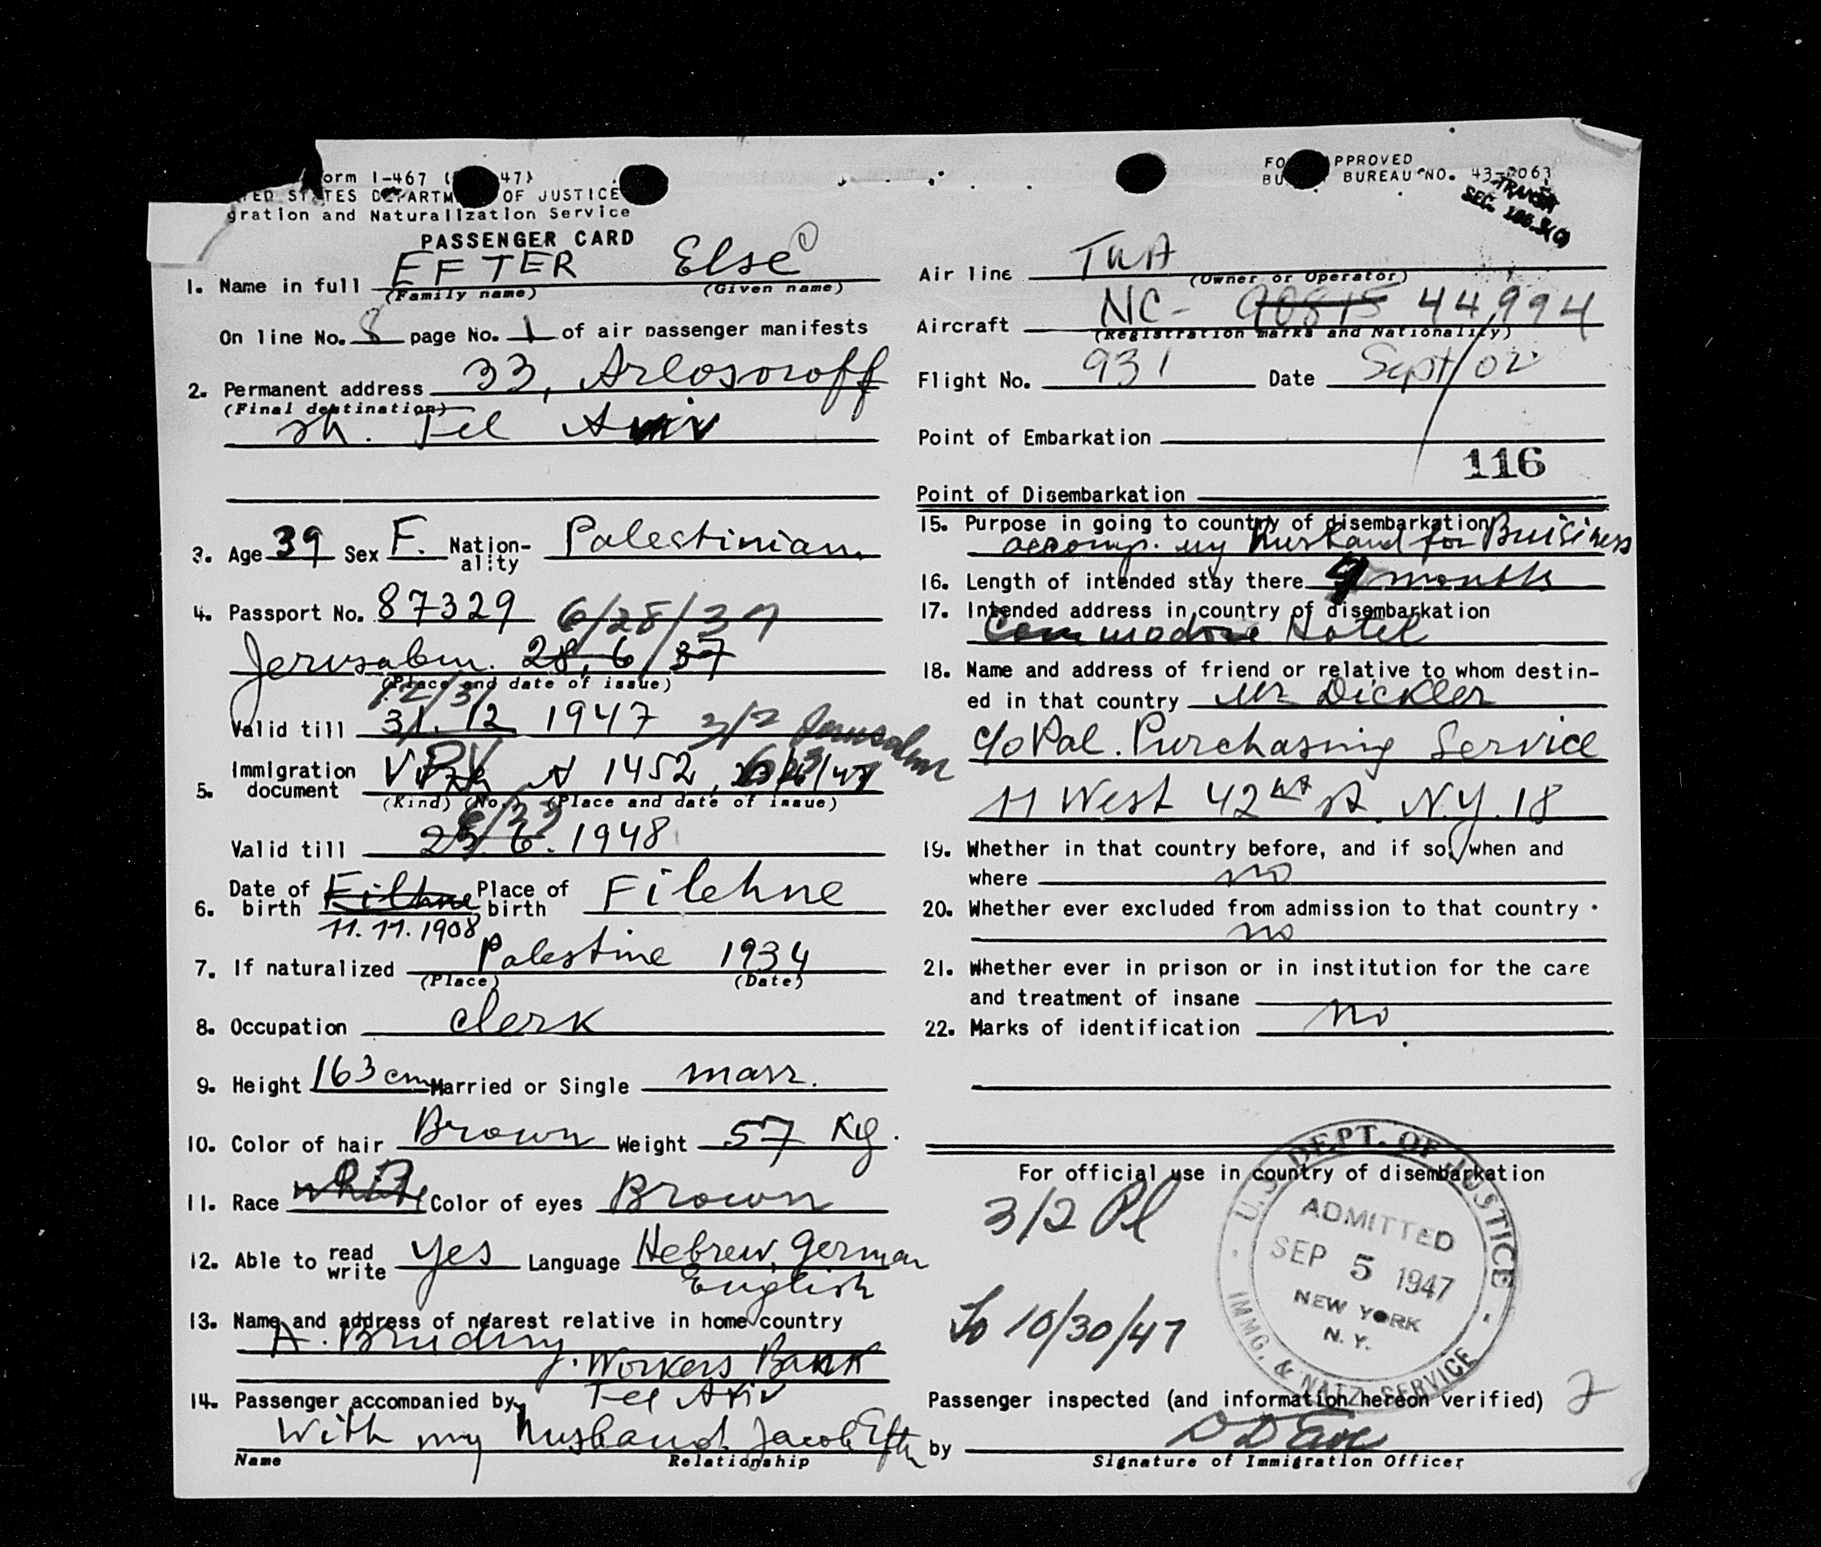 orm I-467 ( 47)
TED STATES DEPARTM OF JUSTICE
gration and Naturalization Service
PASSENGER CARD
1. Name in full EFTER Else
(Family name) (Given name)
On line No. 8 page No. 1 of air passenger manifests
2. Permanent address 33, Arlosoroff
(Final destination)
str. Tel Aviv
3. Age 39 Sex F. Nation-ality Palestinian
4. Passport No. 87329 6/28/37
Jerusalem. 28.6/37
(Place and date of issue)
12/31
Valid till 31.12 1947 3/2 Jerusalem
5. Immigration document V 1452,
(Kind) (No. (Place and date of issue)
Valid till 6. 1948
6. Date of birth Filehne Place of birth Filehne
11.11.1908
7. If naturalized Palestine 1934
(Place) (Date)
8. Occupation clerk
9. Height 163 cm Married or Single marr.
10. Color of hair Brown Weight 57 Kg.
11. Race white Color of eyes Brown
12. Able to read write yes Language Hebrew, German
English
13. Name and address of nearest relative in home country
A.
Workers Bank
14. Passenger accompanied by Tel Aviv
With my husband Jacob Efter
Name Relationship
FO APPROVED
BU BUREAU NO. 43-R063
TRANSIT
SEC.
Air line TWA
(Owner or Operator)
Aircraft NC- 90815 44994
(Registration marks and Nationality)
Flight No. 931 Date Sept/02
Point of Embarkation
116
Point of Disembarkation
15. Purpose in going to country of disembarkation
accomp. my husband for Buisiness
16. Length of intended stay there months
17. Intended address in country of disembarkation
Commodore Hotel
18. Name and address of friend or relative to whom destin-
ed in that country Mr Dickler
c/o Pal. Purchasing Service
11 West 42nd St. N.Y. 18
19. Whether in that country before, and if so, when and
where no
20. Whether ever excluded from admission to that country
no
21. Whether ever in prison or in institution for the care
and treatment of insane
22. Marks of identification no
For official use in country of disembarkation
3/2 Pl
To 10/30/47
U.S. DEPT. OF JUSTICE
ADMITTED
SEP 5 1947
NEW YORK
N. Y.
IMMG. & NATZ. SERVICE
Passenger inspected (and information hereon verified) 2
by
Signature of Immigration Officer